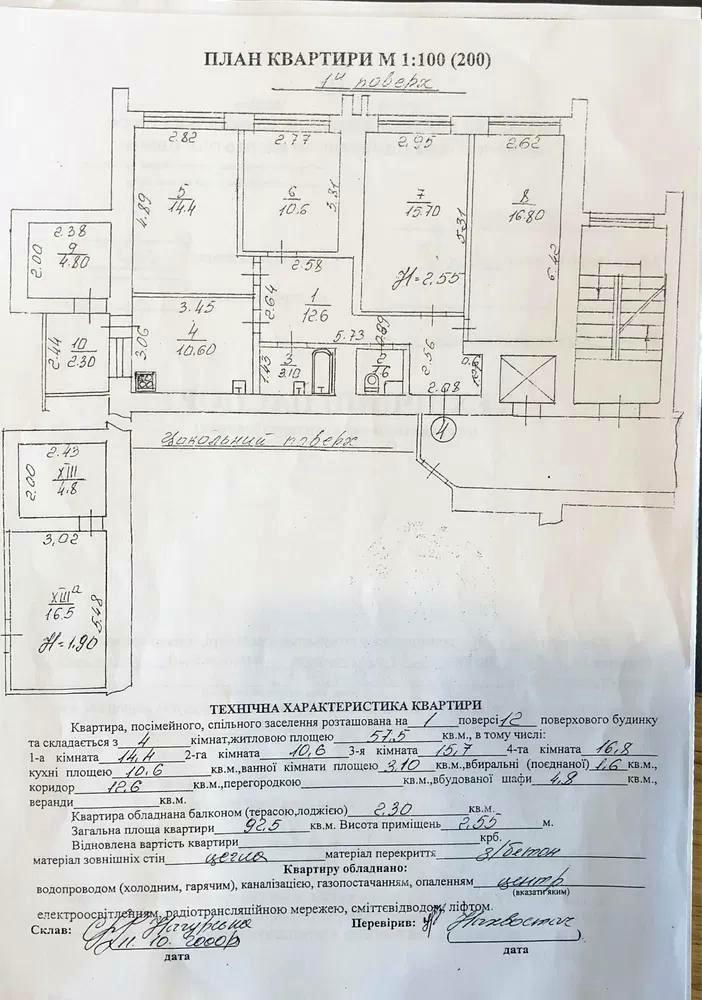 ПЛАН КВАРТИРИ М 1:100 (200)
1й поверх
2.82
2.77
2.95
2.62
5
14.4
4.89
6
10.6
3.81
7
15.70
5.31
8
16.80
6.42
Н=2.55
2.38
9
4.80
2.00
2.58
1
12.6
2.64
5.73
3.45
4
10.60
3.06
10
2.30
2.44
3
3.10
1.43
0.99
2
1.6
2.56
2.08
4
Цокольний поверх
2.43
XIII
4.8
2.00
3,02
XIIIа
16.5
5.48
Н=1.90
ТЕХНІЧНА ХАРАКТЕРИСТИКА КВАРТИРИ
Квартира, посімейного, спільного заселення розташована на 1 поверсі 12 поверхового будинку
та складається з 4 кімнат,житловою площею 57,5 кв.м., в тому числі:
1-а кімната 14,4 2-га кімната 10,6 3-я кімната 15,7 4-та кімната 16,8
кухні площею 10,6 кв.м.,ванної кімнати площею 3,10 кв.м.,вбиральні (поєднаної) 1,6 кв.м.,
коридор 12,6 кв.м.,перегородкою кв.м.,вбудованої шафи 4,8 кв.м.,
веранди кв.м.
Квартира обладнана балконом (терасою,лоджією) 2.30 кв.м.
Загальна площа квартири 92,5 кв.м. Висота приміщень 2,55 м.
Відновлена вартість квартири крб.
матеріал зовнішніх стін цегла матеріал перекриття з/бетон
Квартиру обладнано:
водопроводом (холодним, гарячим), каналізацією, газопостачанням, опаленням центр
(вказати яким)
електроосвітленням, радіотрансляційною мережею, сміттєвідводом, ліфтом.
Склав: Нагурська Перевірив:
11.10.2000р
дата дата